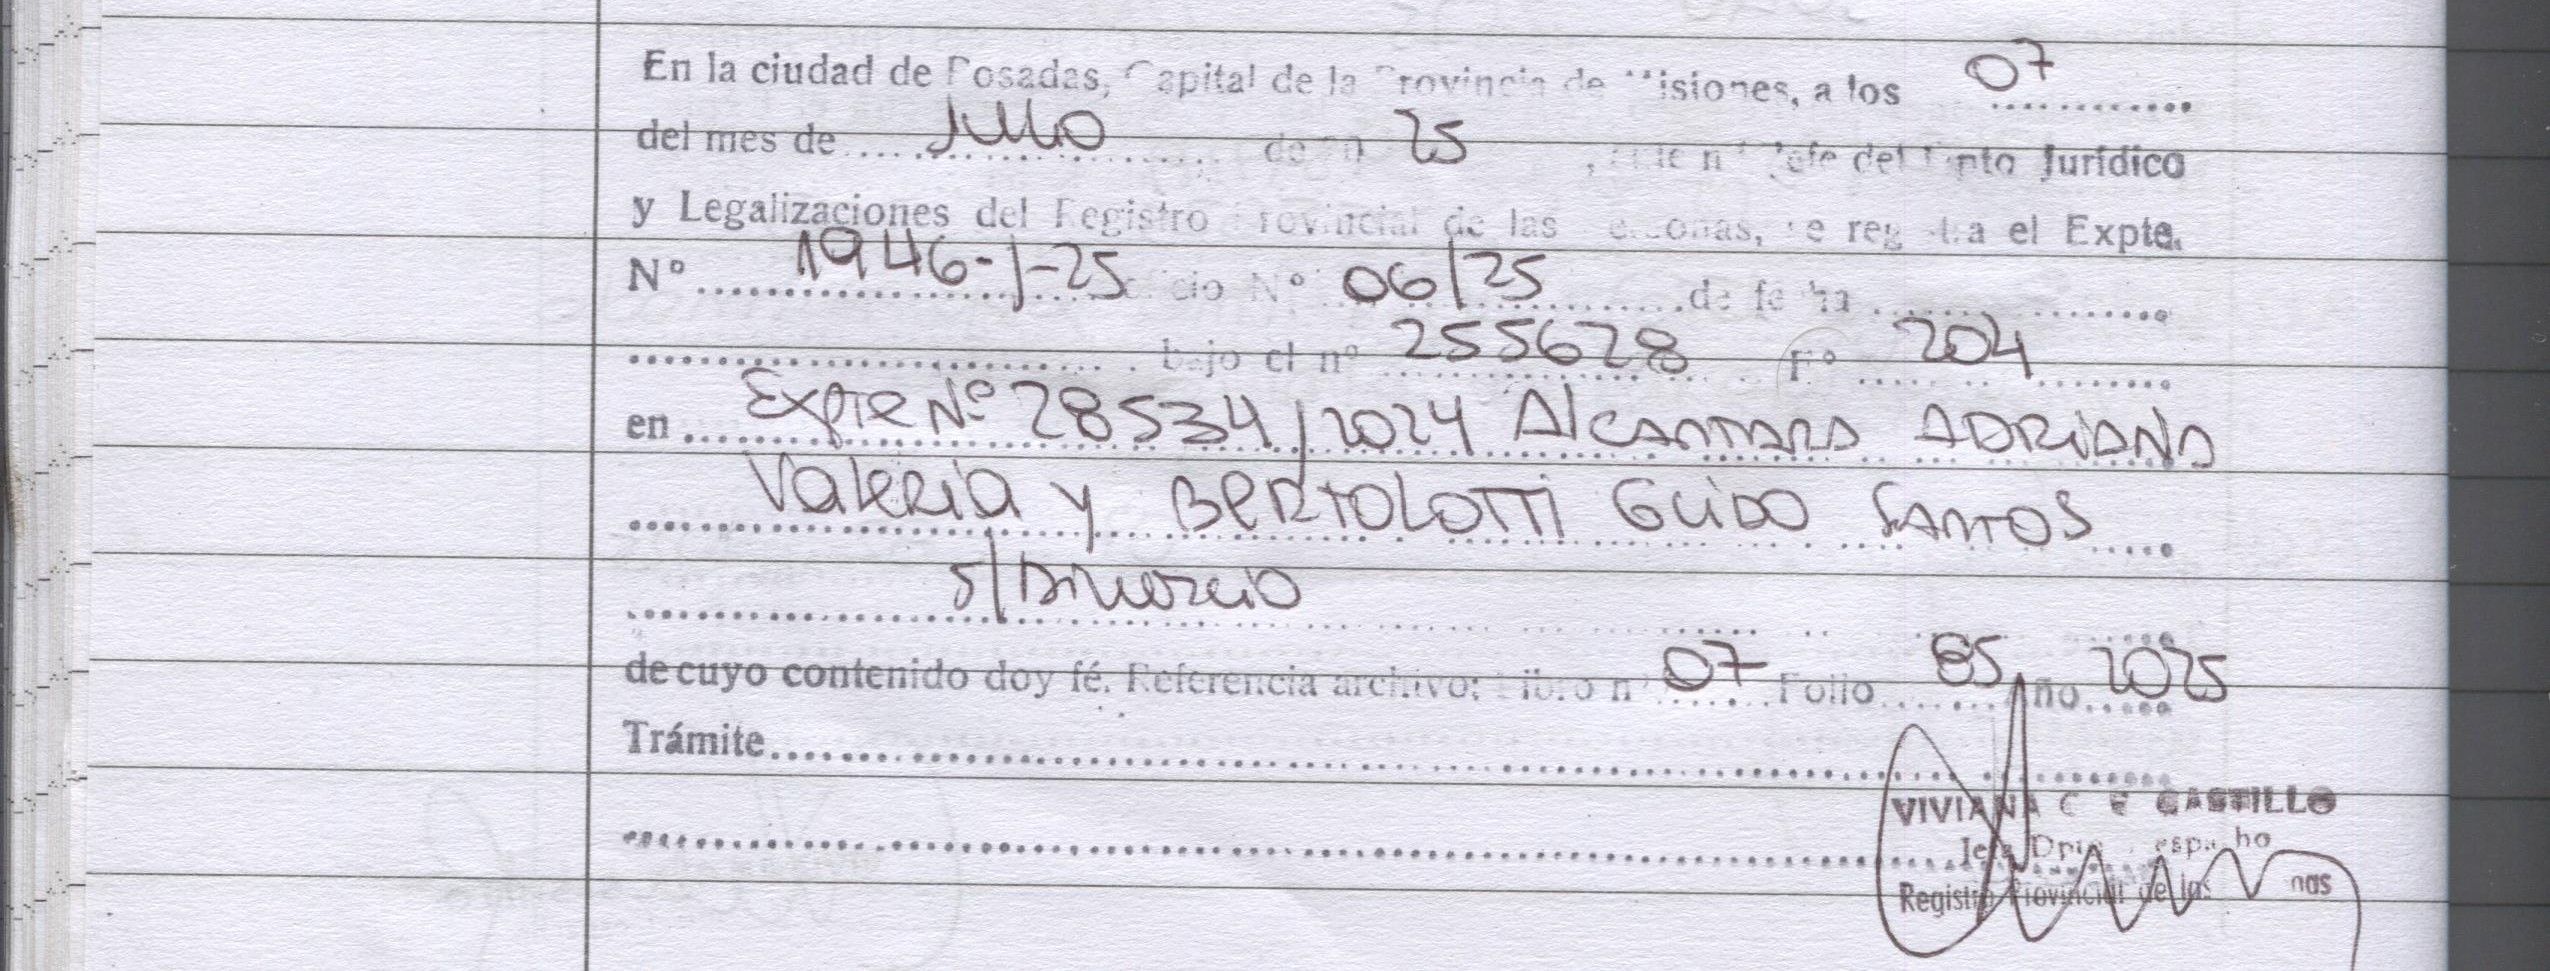 En la ciudad de Posadas, Capital de la Provincia de Misiones, a los 07
del mes de Julio de 20 25, ante mi Jefe del Dpto Jurídico
y Legalizaciones del Registro Provincial de las Personas, se registra el Expte.
Nº 1946-J-25 Oficio Nº 06/25 de fecha
bajo el nº 255628 Fº 204
en Expte Nº 28534/2024 Alcantara Adriana
Valeria y Bertolotti Guido Santos
s/Divorcio
de cuyo contenido doy fé. Referencia archivo: Libro nº 07 Folio 85 Año 2025
Trámite
VIVIANA C CASTILLO
Jefa Dpto Despacho
Registro Provincial de las Personas